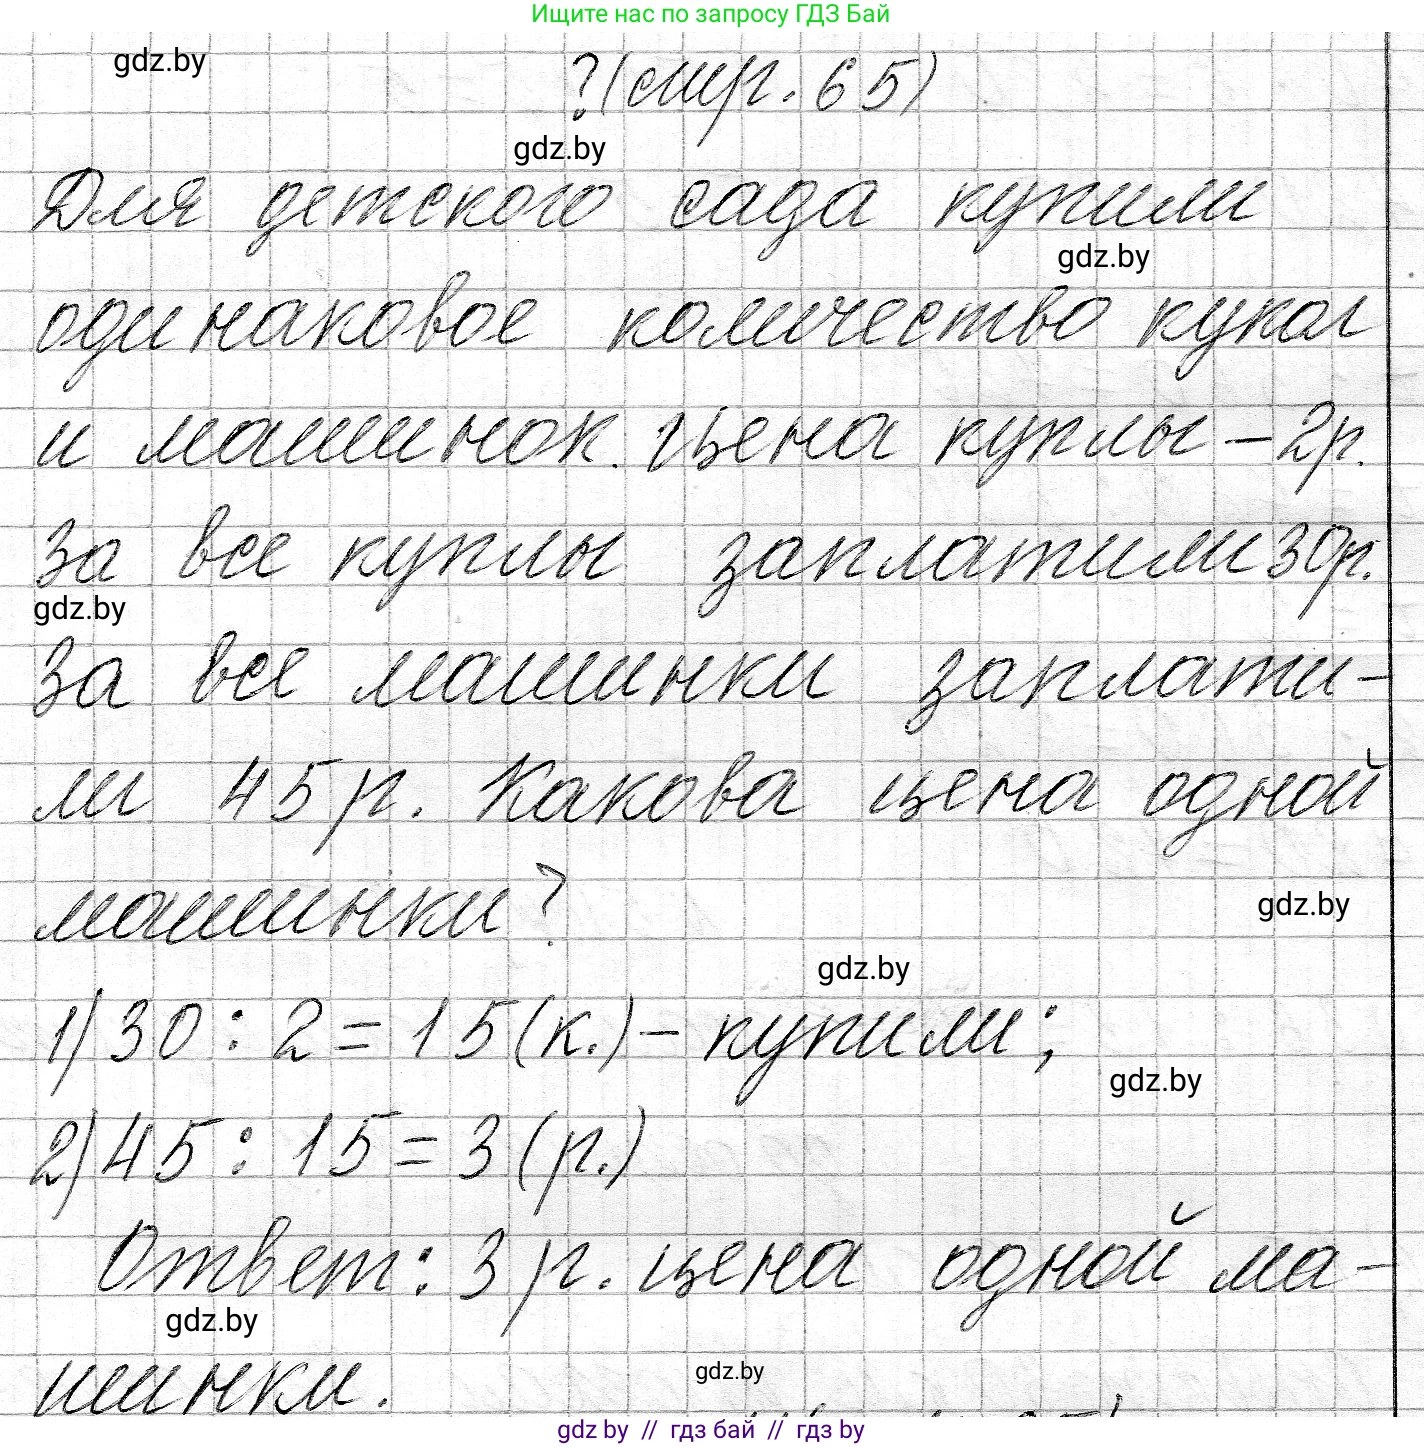 Ищите нас по запросу ГДЗ Бай
gdz.by
?(стр. 65)
gdz.by
Для детского сада купили
gdz.by
одинаковое количество кукол
и машинок. Цена куклы – 2р.
За все куклы заплатили 30р.
gdz.by
За все машинки заплати-
ли 45 р. Какова цена одной
машинки?
gdz.by
gdz.by
1) 30 : 2 = 15 (к.) – купили;
gdz.by
2) 45 : 15 = 3 (р.)
Ответ: 3 р. цена одной ма-
gdz.by
шинки.
gdz.by
gdz by // гдз бай // гдз by